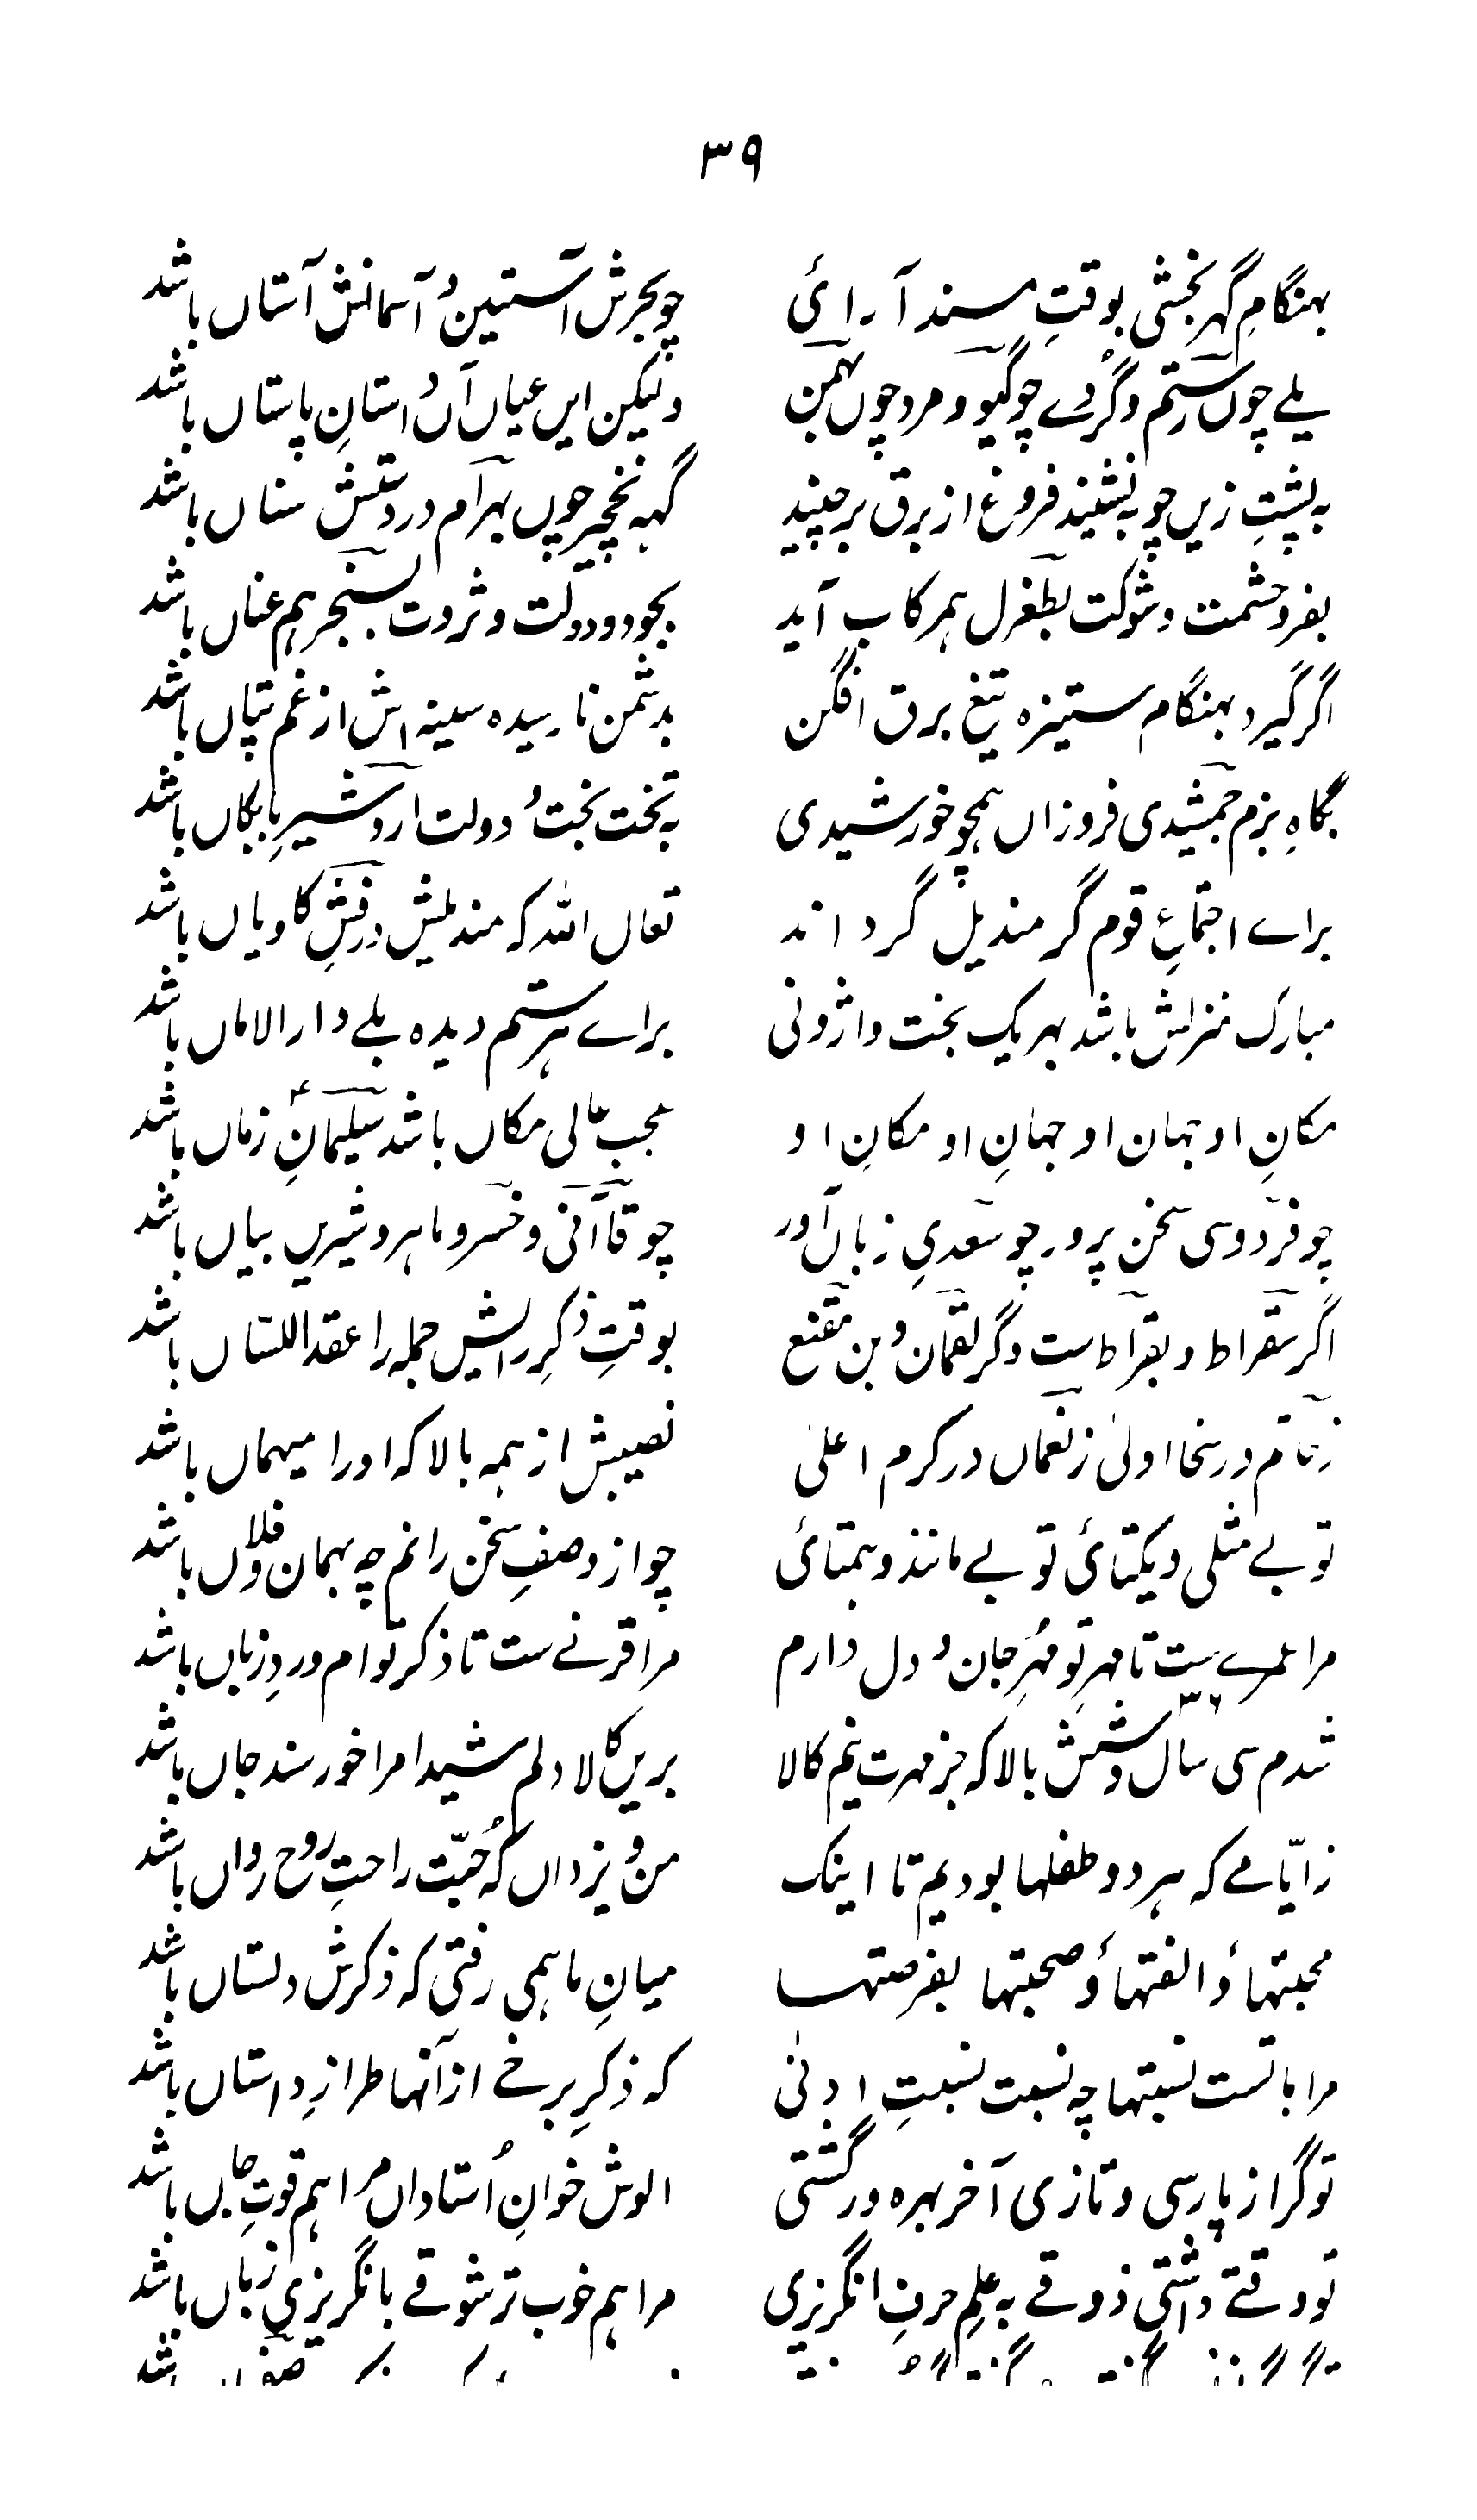 ۳۹
بہنگامِ گہر بخشی بوقتِ مسند آرائی چو بحرش آستین و آسمانش آستاں باشد
یلے چوں رستم و گُردے چو گیو و مرد چوں بہمن ولیکن ایں عیاں آں داستانِ پاستاں باشد
بہ پشتِ زیں چو بنشیند فروغ از برق برچیند گہہِ نخچیر چوں بہرام در دستش سناں باشد
بفر و حشمت و شوکت بطغرل ہمرکاب آید بجود و دولت و ثروت بسنجر ہم عناں باشد
اگر گیرد بہنگام ستیزہ تیغ برق افگن بدشمن نارسیدہ سینہ اش از غم تپاں باشد
بگاہِ بزم جمشیدی فروزاں ہمچو خورشیدی بہ تخت بخت و دولت اردشیرِ بابکاں باشد
براے اجتماعِ قوم گر مندیل گرداند تعال اللہ کہ مندیلش درفشِ کاویاں باشد
مبارک منزلش باشد بہر یک بخت واژونی براے ہر ستم دیدہ بلے دار الاماں باشد
مکانِ او جہان او جہانِ او مکانِ او عجب عالی مکاں باشد سلیمانِؑ زماں باشد
چو فردوسی سخن پرور چو سعدیِ زباں آور چو قاآنی و خسرو ماہر و شیریں بیاں باشد
اگر سقراط و بقراط ست و گر لقمان و بن مقنع بوقتِ ذکرِ رائش جملہ را عقد اللساں باشد
ز حاتم در سخا اولیٰ ز نعماں در کرم اعلیٰ نصیبش از ہمہ بالا کہ او را میہماں باشد
تو بے مثلی و یکتائی تو بے مانند و ہمتائی چو از وصفِ سخن رانم چہ بہمان و فلاں باشد
مرا عمرے ست تا مہرِ تو مہُرِ جان و دل دارم مرا قرنے ست تا ذکر توام وردِ زباں باشد
شدم سی سال و شش ۳۶ بالا کہ جز مہرت نیم کالا بریں کالا دلم شیدا مرا خورسند جاں باشد
ز ایّامے کہ ہر دو طفلہا بودیم تا اینک من و یزداں کہ حُبّت راحتِ روح رواں باشد
محبتہا و الفتہا و صحبتہا بفرصتہا میانِ ما ہمی رفتی کہ ذکرش دلستاں باشد
مرا باتست نسبتہا چہ نسبت نسبتِ ادنیٰ کہ ذکرِ برخے از آنہا طرازِ داستاں باشد
تو گر از پارسی و تازی آخر بہرہ ور گشتی الوش خوانِ اُستاداں مرا ہم قوتِ جاں باشد
تو وقتے داشتی ذوقے بہ علمِ حرفِ انگریزی مرا ہم خوب تر شوقے بانگریزی زباں باشد